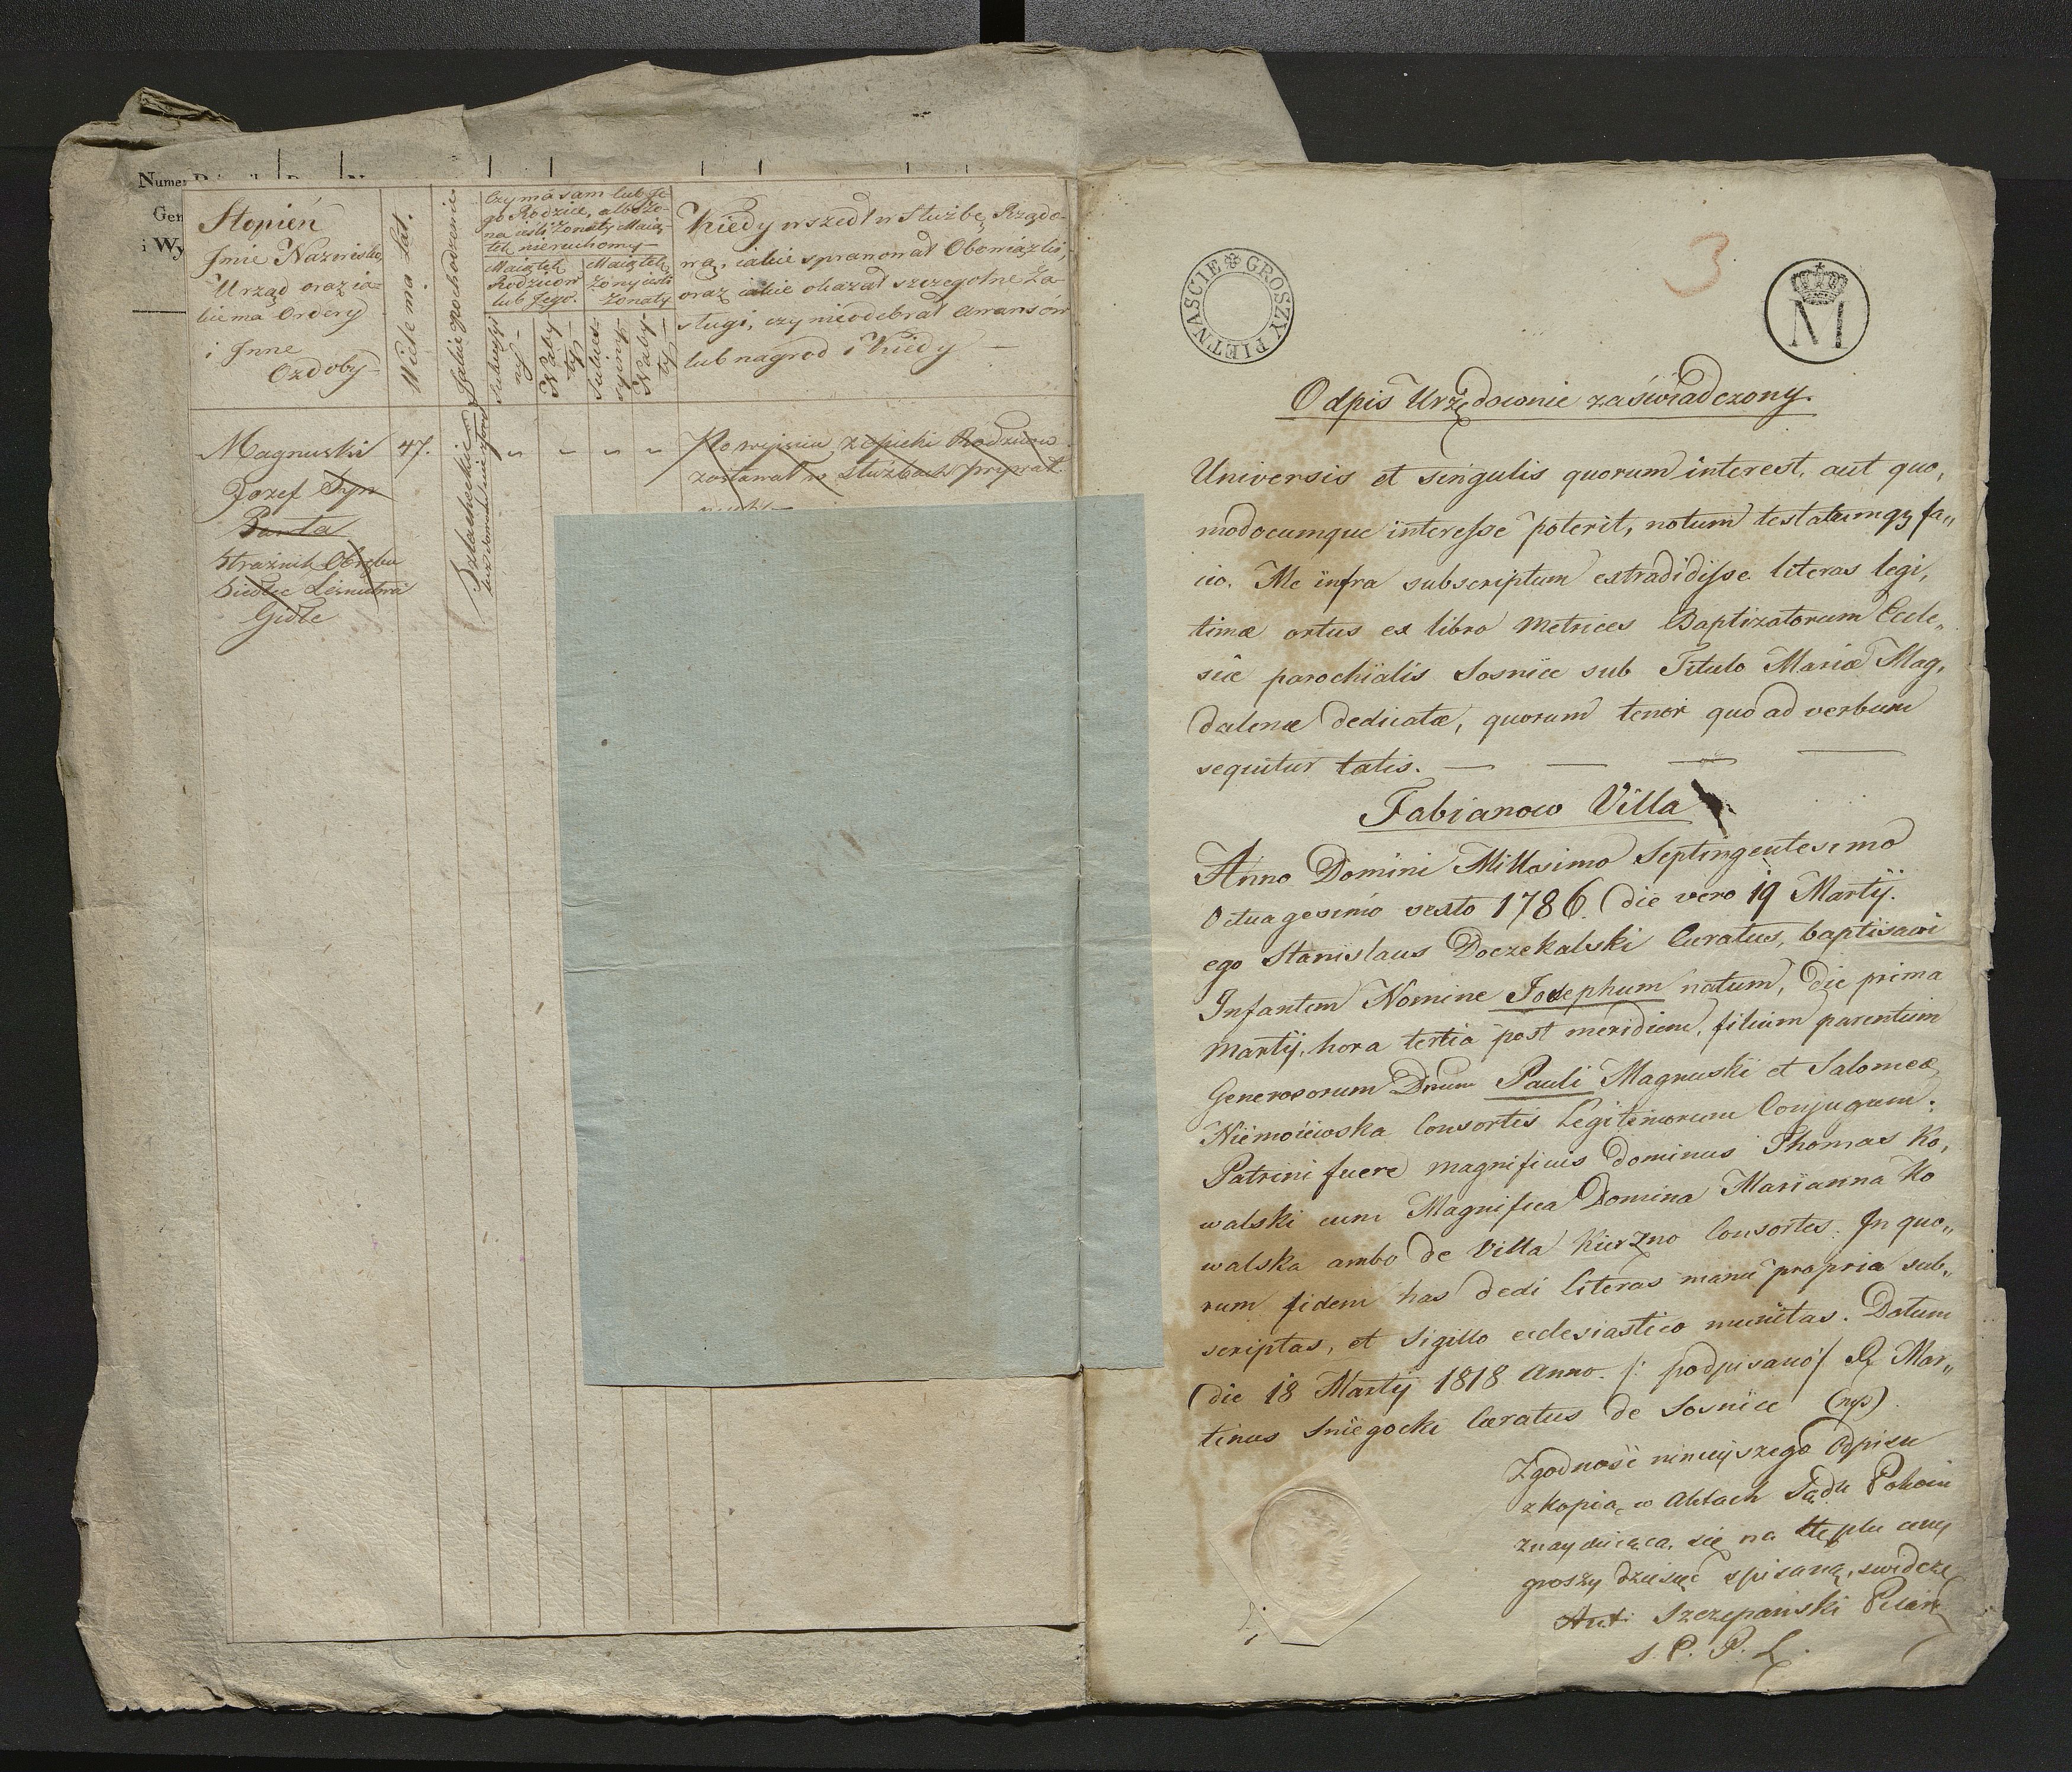 Numer
Gen
i Wy
Stopień
Jmie Nazwisko,
Urząd oraz ia-
kie ma Ordery
i Jnne
Ozdoby
Wiele ma Lat.
Jakie pochodzenie
Czy ma sam lub Je-
go Rodzice, albo żo-
na iesli żonaty Maią-
tek nieruchomy
Maiątek
Rodziców
lub Jego.
Maiątek
żony iesli
żonaty
Sukcessyi-
ny
Naby-
ty
Sukces-
syiny
Naby-
ty
Kiedy wszedł w Służbę Rządo-
wą, iakie sprawował Obowiązki,
oraz iakie okazał szczegolne Za-
sługi, czy nieodebrał awansów
lub nagrod i Kiedy
Magnuski
Jozef Syn
Pawła
Strażnik Obrębu
Siedlec Leśnictwa
Gidle
47.
Szlacheckie
Po wyjsciu z opieki Rodziców
zostawał w Służbach prywat-
GROSZY PIETNASCIE
3
M
Odpis Urzędownie zaświadczony.
Universis et singulis quorum interest, aut quo,
modocumque interesse poterit, notum testatumqʒ fa„
cio. Me infra subscriptum extradidisse literas legi,
timæ ortus ex libro Metrices Baptizatorum Eccle„
siæ parochialis Sosnice sub Titulo Mariæ Mag,
dalenæ dedicatæ, quorum tenor quo ad verbum
sequitur talis. — — — —
Fabianow Villa
Anno Domini Millesimo Septingentesimo
Octuagesimo sexto 1786. die vero 19 Martij.
ego Stanislaus Doczekalski Curatus, baptisavi
Infantem Nomine Josephum natum, die prima
Martij, hora tertia post meridiem, filium parentum
Generosorum Dnum Pauli Magnuski et Salomeæ
Niemoiewska Consortis Legitimorum Conjugum.
Patrini fuere magnificus dominus Thomas Ko,
walski cum Magnifica Domina Marianna Ko
walska ambo de Villa Kierzno Consortes. In quo„
rum fidem has dedi literas manu propria sub„
scriptas, et Sigillo ecclesiastico munitas. Datum
die 18 Martij 1818 Anno. /: podpisano/ X. Mar„
tinus Sniegocki Curatus de Sosnice (mp)
Zgodność ninieyszego Odpisu
z kopią w Aktach Sądu Pokoiu
znayduiącą się na stęplu ceny
groszy dziesięć spisaną, swiadczę
Ant: Szczepański Pisarz
S. P. P. L.